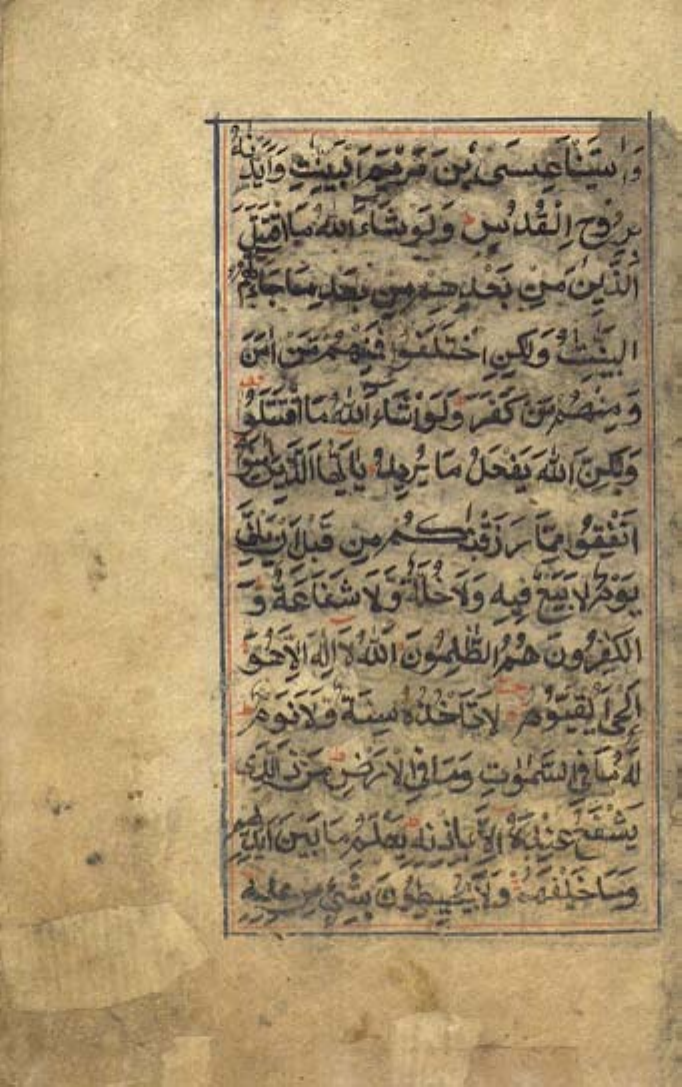 وَاٰتَيْنَا عِيسَى بْنَ مَرْيَمَ الْبَيِّنٰتِ وَاَيَّدْنٰهُ
بِرُوحِ الْقُدُسِ وَلَوْ شَاءَ اللّٰهُ مَا اقْتَتَلَ
الَّذِينَ مِنْ بَعْدِهِمْ مِنْ بَعْدِ مَا جَاءَتْهُمُ
الْبَيِّنٰتُ وَلٰكِنِ اخْتَلَفُوا فَمِنْهُمْ مَنْ اٰمَنَ
وَمِنْهُمْ مَنْ كَفَرَ وَلَوْ شَاءَ اللّٰهُ مَا اقْتَتَلُوا
وَلٰكِنَّ اللّٰهَ يَفْعَلُ مَا يُرِيدُ يٰاَيُّهَا الَّذِينَ اٰمَنُوا
اَنْفِقُوا مِمَّا رَزَقْنٰكُمْ مِنْ قَبْلِ اَنْ يَاْتِيَ
يَوْمٌ لَا بَيْعٌ فِيهِ وَلَا خُلَّةٌ وَلَا شَفَاعَةٌ وَ
الْكٰفِرُونَ هُمُ الظّٰلِمُونَ اَللّٰهُ لَا اِلٰهَ اِلَّا هُوَ
اَلْحَيُّ الْقَيُّومُ لَا تَاْخُذُهُ سِنَةٌ وَلَا نَوْمٌ
لَهُ مَا فِي السَّمٰوٰتِ وَمَا فِي الْاَرْضِ مَنْ ذَا الَّذِي
يَشْفَعُ عِنْدَهُ اِلَّا بِاِذْنِهِ يَعْلَمُ مَا بَيْنَ اَيْدِيهِمْ
وَمَا خَلْفَهُمْ وَلَا يُحِيطُونَ بِشَيْءٍ مِنْ عِلْمِهِ